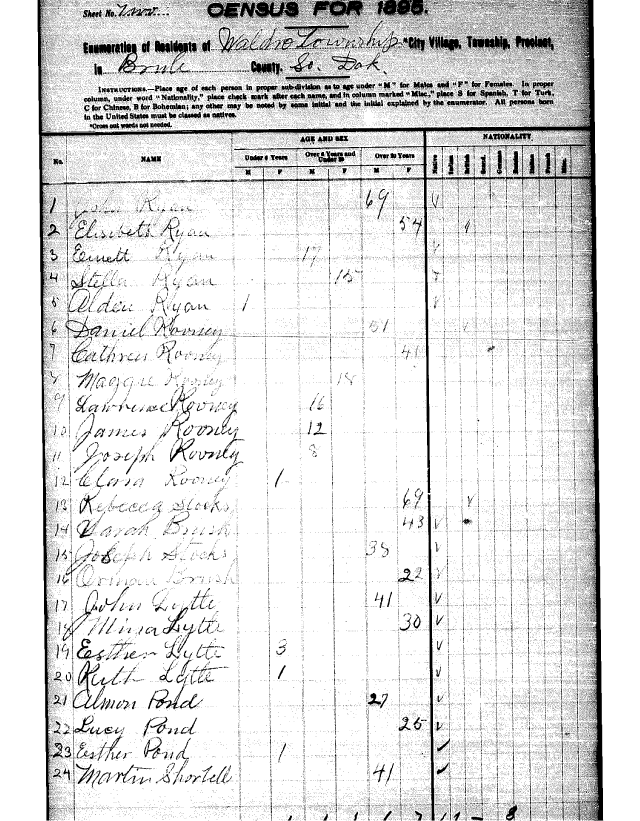 Sheet No. Two
CENSUS FOR 1895.
Enumeration of Residents of Waldro Township *City Village, Township, Precinct,
in Brule County, So. Dak.
INSTRUCTIONS.—Place age of each person in proper sub-division as to age under "M" for Males and "F" for Females. In proper
column, under word "Nationality," place check mark after each name, and in column marked "Misc.," place S for Spanish, T for Turk,
C for Chinese, B for Bohemian; any other may be noted by some initial and the initial explained by the enumerator. All persons born
in the United States must be classed as natives.
*Cross out words not needed.
AGE AND SEX NATIONALITY
No. NAME Under 6 Years Over 6 Years and Under 20 Over 20 Years
M F M F M F
1 Ryan 69 v
2 Elisibeth Ryan 54 v
3 Emett Ryan 17 v
4 Stella Ryan 15 v
5 Alden Ryan 1 v
6 Daniel Rooney 51 v
7 Cathren Rooney 41
8 Maggie Rooney 18
9 Lawrence Rooney 16
10 James Rooney 12
11 Joseph Rooney 8
12 Clara Rooney 1
13 Rebecca Stocks 69 v
14 Sarah Brush 43 v
15 Joseph Stocks 38 v
16 Brush 22 v
17 John Lytte 41 v
18 Mina Lytte 30 v
19 Eesther Lytte 3 v
20 Ruth Lytte 1 v
21 Almon Pond 27 v
22 Lucy Pond 25 v
23 Esther Pond 1 ✓
24 Martin Shortell 41 ✓